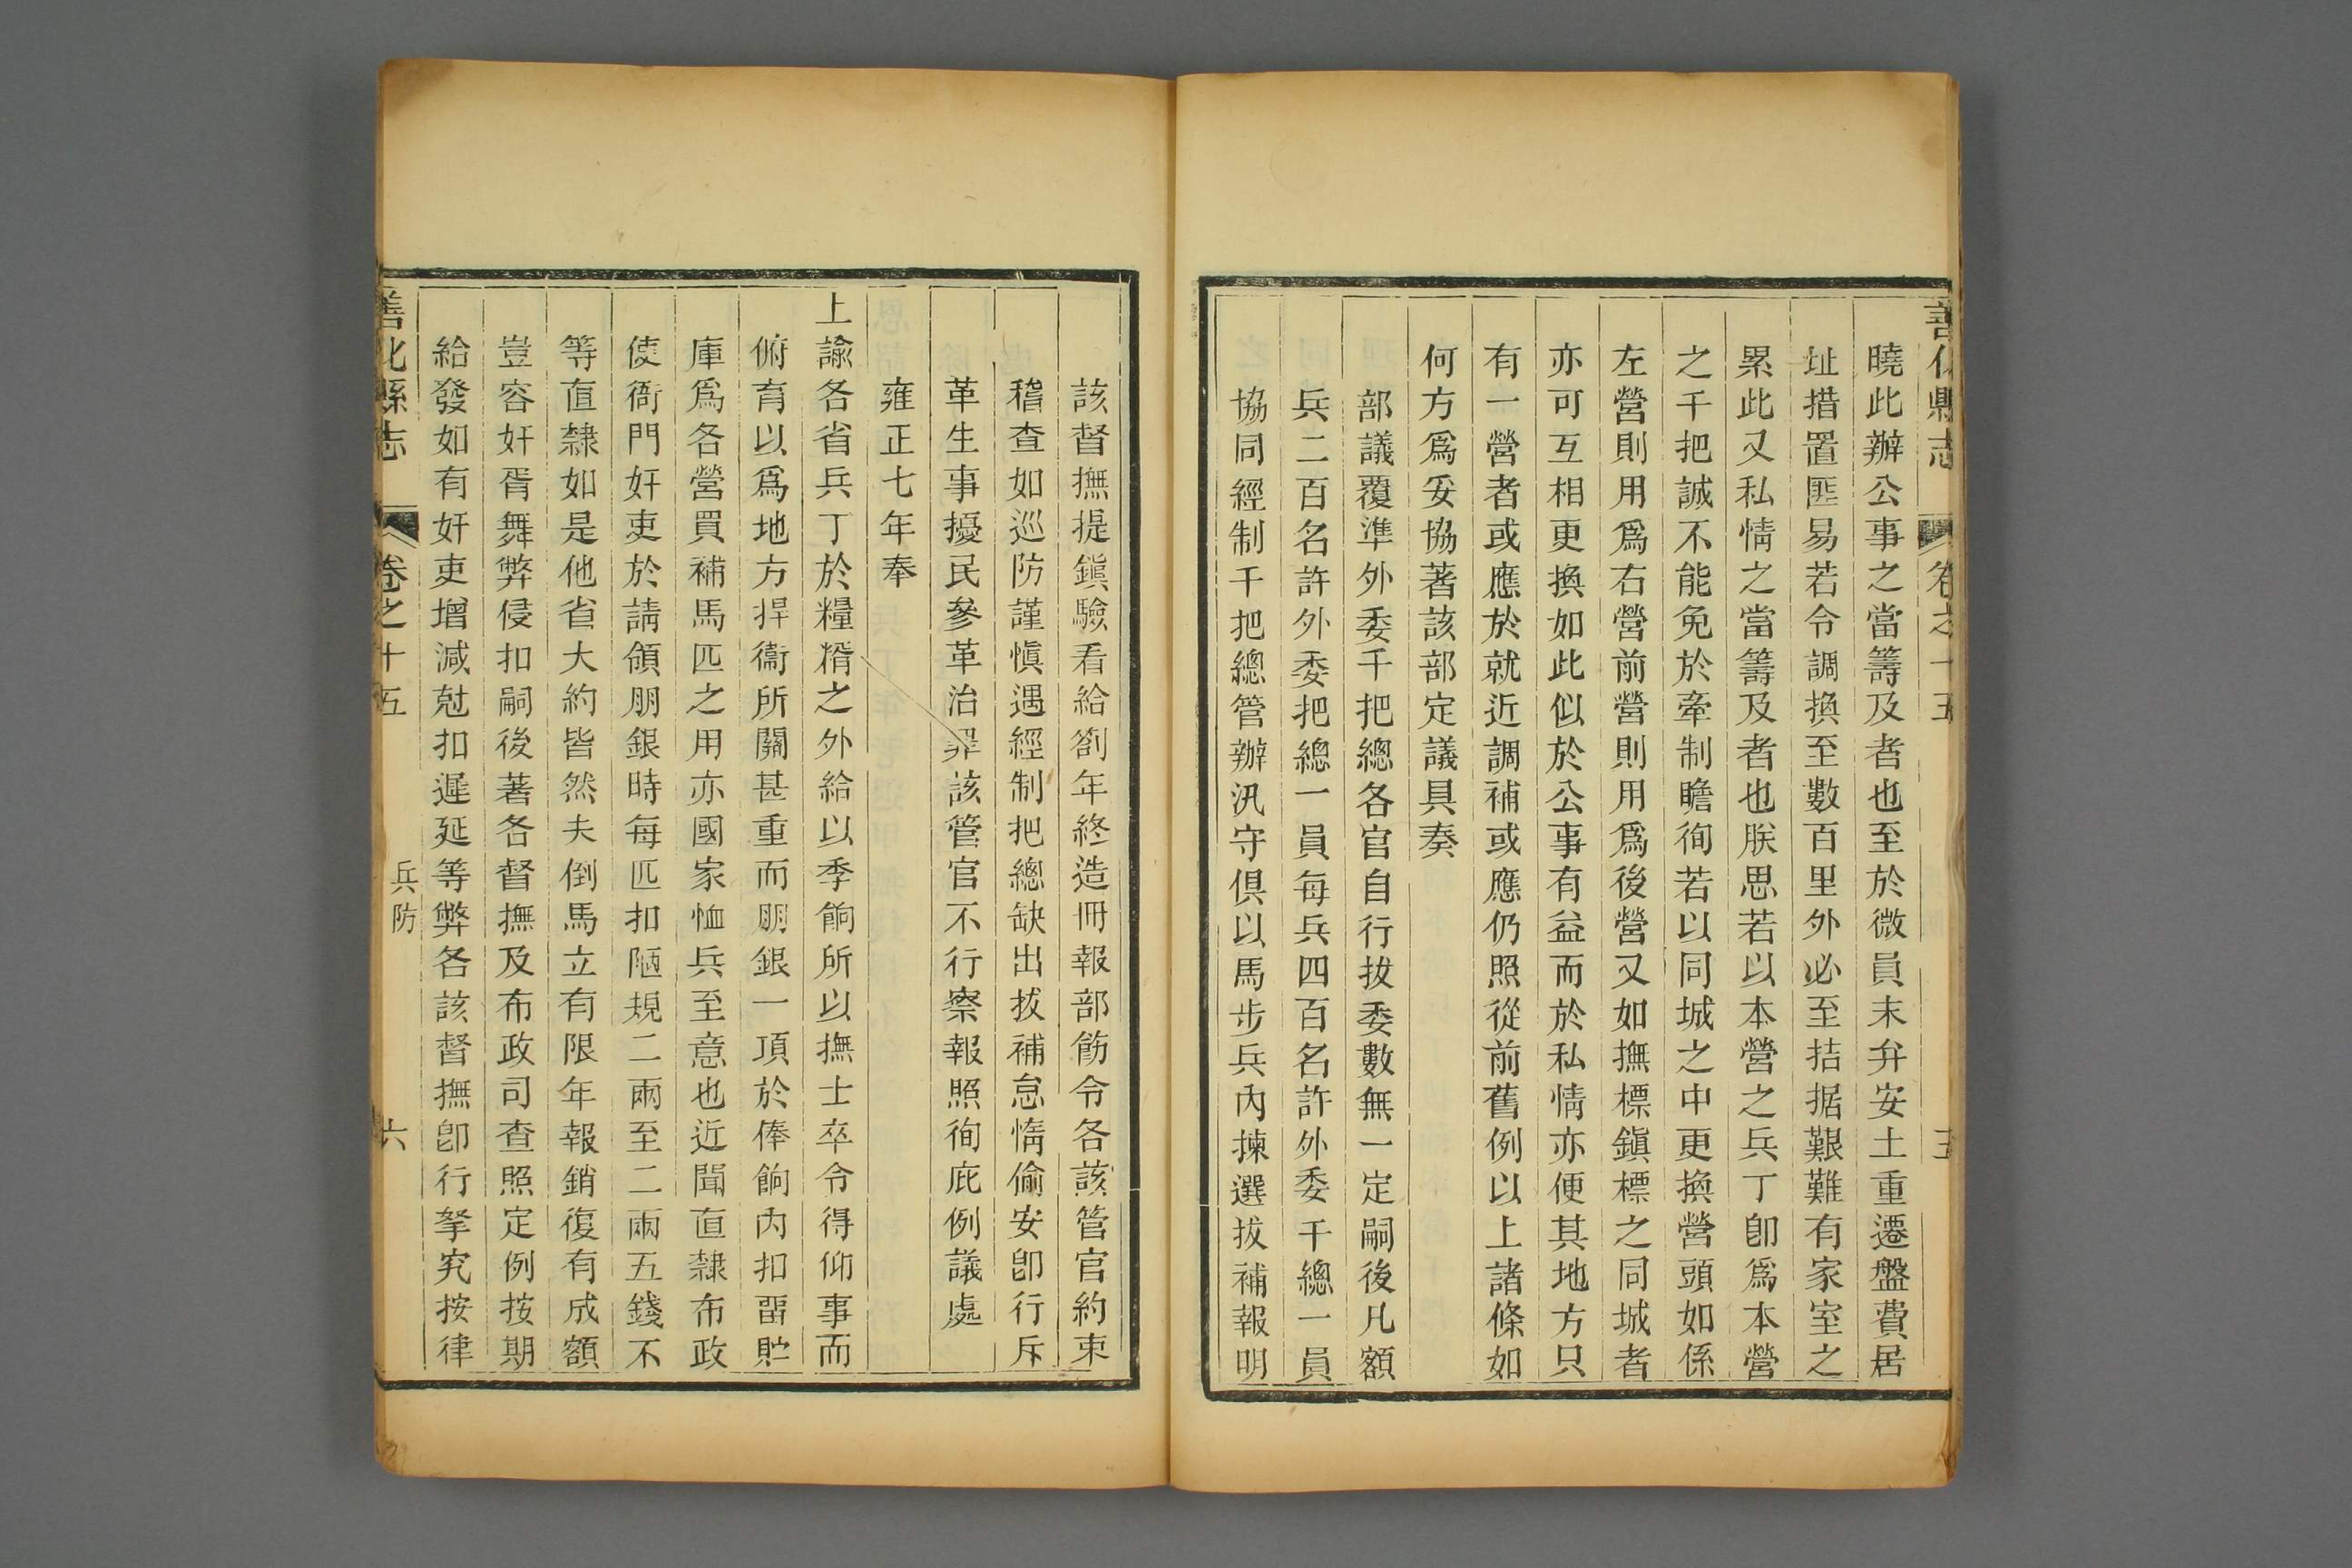 善化縣志 卷之十五 五
曉此辦公事之當籌及者也至於微員末弁安土重遷盤費居
址措置匪易若令調換至數百里外必至拮据艱難有家室之
累此又私情之當籌及者也朕思若以本營之兵丁卽爲本營
之千把誠不能免於牽制瞻徇若以同城之中更換營頭如係
左營則用爲右營前營則用爲後營又如撫標鎭標之同城者
亦可互相更換如此似於公事有益而於私情亦便其地方只
有一營者或應於就近調補或應仍照從前舊例以上諸條如
何方爲妥協著該部定議具奏
部議覆準外委千把總各官自行拔委數無一定嗣後凡額
兵二百名許外委把總一員每兵四百名許外委千總一員
協同經制千把總管辦汛守俱以馬步兵內揀選拔補報明
該督撫提鎭驗看給劄年終造冊報部飭令各該管官約束
稽查如巡防謹愼遇經制把總缺出拔補怠惰偷安卽行斥
革生事擾民參革治罪該管官不行察報照徇庇例議處
雍正七年奉
上諭各省兵丁於糧糈之外給以季餉所以撫士卒令得仰事而
俯育以爲地方捍衞所關甚重而朋銀一項於俸餉內扣畱貯
庫爲各營買補馬匹之用亦國家恤兵至意也近聞直隸布政
使衙門奸吏於請領朋銀時每匹扣陋規二兩至二兩五錢不
等直隸如是他省大約皆然夫倒馬立有限年報銷復有成額
豈容奸胥舞弊侵扣嗣後著各督撫及布政司查照定例按期
給發如有奸吏增減尅扣遲延等弊各該督撫卽行拏究按律
善化縣志 卷之十五 兵防 六